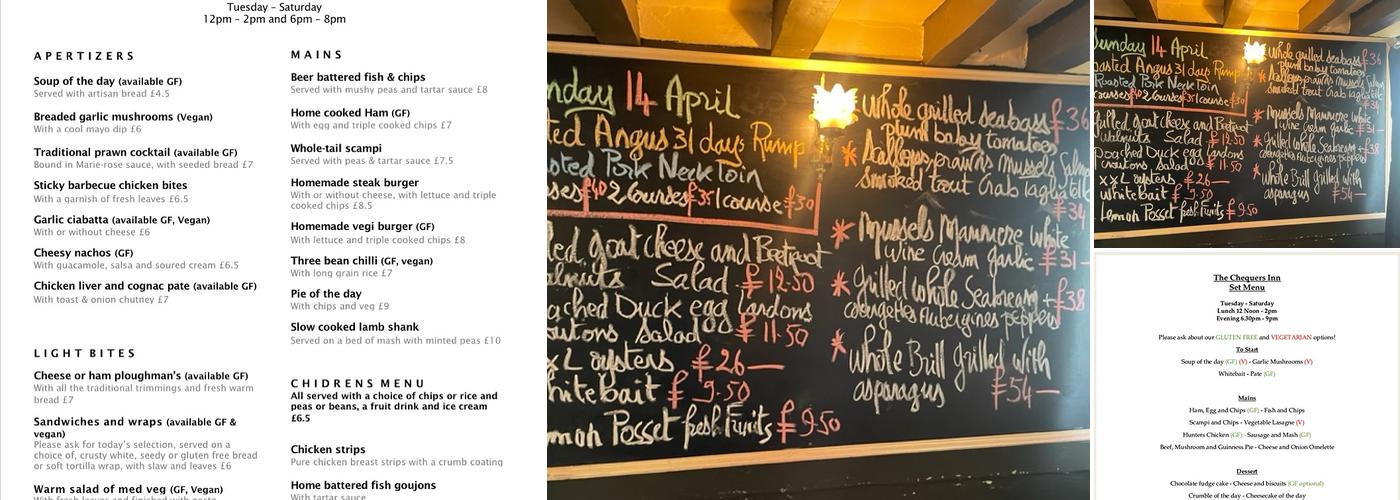 Tuesday – Saturday
12pm – 2pm and 6pm – 8pm
APERTIZERS
Soup of the day (available GF)
Served with artisan bread £4.5
Breaded garlic mushrooms (Vegan)
With a cool mayo dip £6
Traditional prawn cocktail (available GF)
Bound in Marie-rose sauce, with seeded bread £7
Sticky barbecue chicken bites
With a garnish of fresh leaves £6.5
Garlic ciabatta (available GF, Vegan)
With or without cheese £6
Cheesy nachos (GF)
With guacamole, salsa and soured cream £6.5
Chicken liver and cognac pate (available GF)
With toast & onion chutney £7
LIGHT BITES
Cheese or ham ploughman's (available GF)
With all the traditional trimmings and fresh warm
bread £7
Sandwiches and wraps (available GF &
vegan)
Please ask for today's selection, served on a
choice of, crusty white, seedy or gluten free bread
or soft tortilla wrap, with slaw and leaves £6
Warm salad of med veg (GF, Vegan)
With fresh leaves and finished with pesto
MAINS
Beer battered fish & chips
Served with mushy peas and tartar sauce £8
Home cooked Ham (GF)
With egg and triple cooked chips £7
Whole-tail scampi
Served with peas & tartar sauce £7.5
Homemade steak burger
With or without cheese, with lettuce and triple
cooked chips £8.5
Homemade vegi burger (GF)
With lettuce and triple cooked chips £8
Three bean chilli (GF, vegan)
With long grain rice £7
Pie of the day
With chips and veg £9
Slow cooked lamb shank
Served on a bed of mash with minted peas £10
CHIDRENS MENU
All served with a choice of chips or rice and
peas or beans, a fruit drink and ice cream
£6.5
Chicken strips
Pure chicken breast strips with a crumb coating
Home battered fish goujons
With tartar sauce
nday 14 April
ted Angus 31 days Rump
osted Pork Neck loin
ses £40 2 Courses £35 1 course £30
led goat cheese and Beetroot
alnuts Salad £12.50
ached Duck egg lardons
outons salad £11.50
x L oysters £26—
hitebait £9.50
mon Posset fresh Fruits £9.50
whole grilled seabass £36
plum baby tomatoes
* Scallops prawns mussels Salmon
smoked trout Crab tagliatelle
£34
* Mussels Mariniere white
wine Cream garlic £31—
* Grilled whole Seabream + £38
courgettes Aubergines peppers
* whole Brill grilled with
asparagus £54—
Sunday 14 April
asted Angus 31 days Rump
Roasted Pork Neck loin
courses £40 2 courses £35 1 course £30
Grilled goat cheese and Beetroot
walnuts Salad £12.50
Poached Duck egg lardons
croutons salad £11.50
x x L oysters £26—
whitebait £9.50
Lemon Posset fresh Fruits £9.50
whole grilled seabass £36
plum baby tomatoes
* Scallops prawns mussels Salmon
smoked trout Crab tagliatelle
£34
* Mussels Mariniere white
wine Cream garlic £31—
* Grilled whole Seabream + £38
courgettes Aubergines peppers
* whole Brill grilled with
asparagus £54—
The Chequers Inn
Set Menu
Tuesday - Saturday
Lunch 12 Noon - 2pm
Evening 6.30pm - 9pm
Please ask about our GLUTEN FREE and VEGETARIAN options!
To Start
Soup of the day (GF) (V) - Garlic Mushrooms (V)
Whitebait - Pate (GF)
Mains
Ham, Egg and Chips (GF) - Fish and Chips
Scampi and Chips - Vegetable Lasagne (V)
Hunters Chicken (GF) - Sausage and Mash (GF)
Beef, Mushroom and Guinness Pie - Cheese and Onion Omelette
Dessert
Chocolate fudge cake - Cheese and biscuits (GF optional)
Crumble of the day - Cheesecake of the day